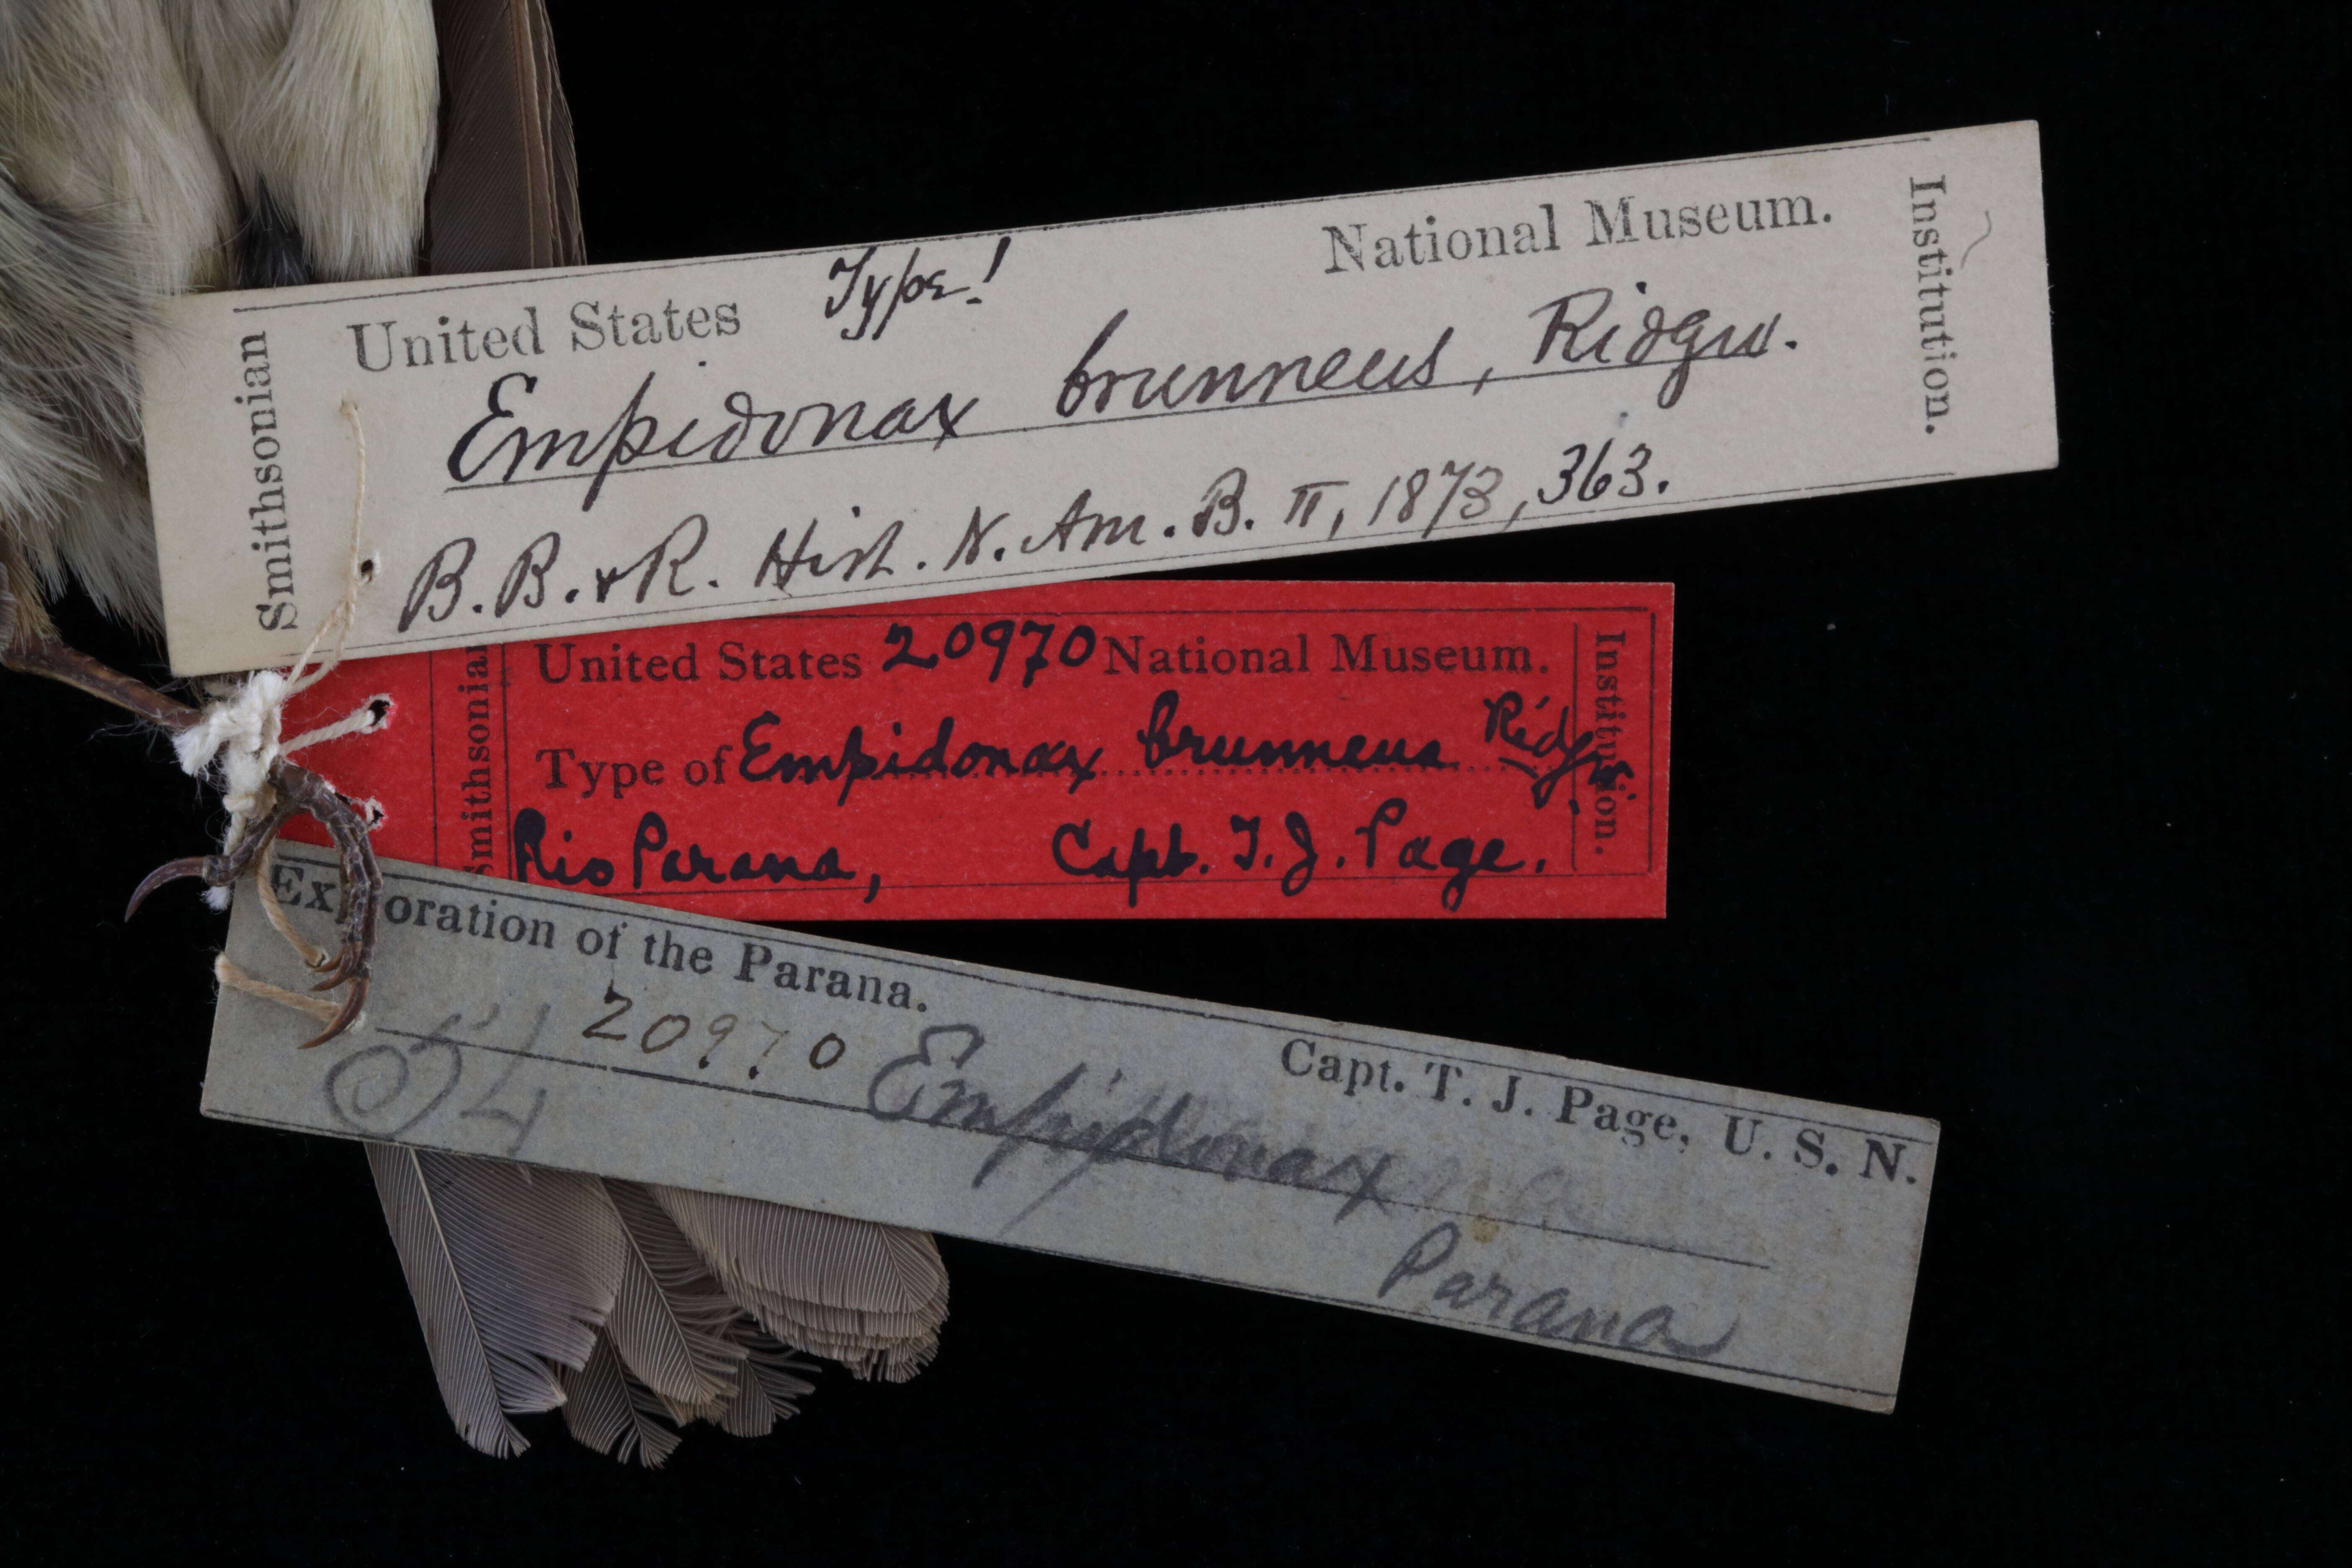 Smithsonian
United States Type! National Museum.
Empidonax brunneus, Ridgw.
B. B. & R. Hist. N. Am. B. II, 1873, 363.
Institution.
Smithsonian
United States 20970 National Museum.
Type of Empidonax brunneus Ridgw.
Rio Parana, Capt. T. J. Page.
Institution.
Exploration of the Parana. Capt. T. J. Page, U. S. N.
20970 Empidonax
Parana